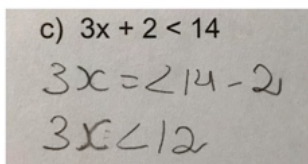 c) 3x + 2 < 14
3x = < 14 - 2
3x < 12